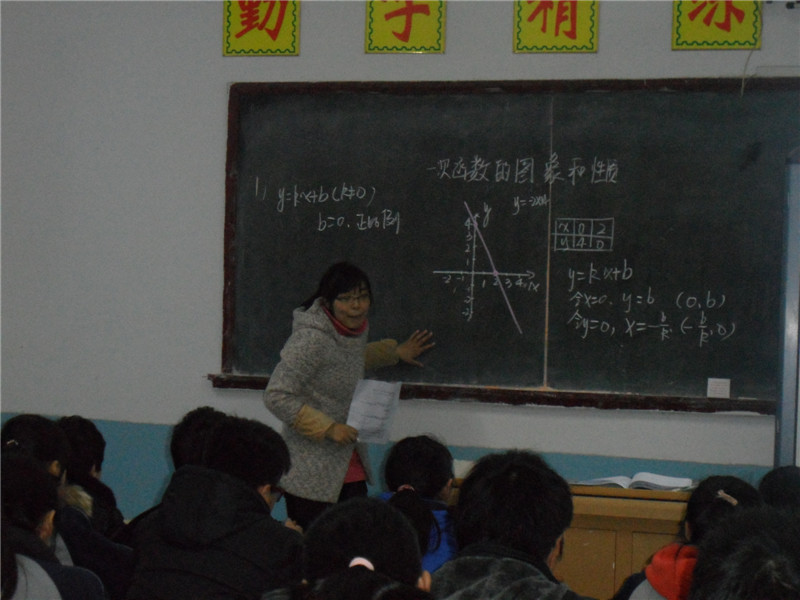 勤 学 精 练
一次函数的图象和性质
1) y=kx+b(k≠0)
b=0, 正比例
y
4
3
2
1
-2 -1 1 2 3 4 x
-1
-2
x 0 2
y 4 0
y=kx+b
令x=0, y=b (0,b)
令y=0, x=-b/k (-b/k,0)